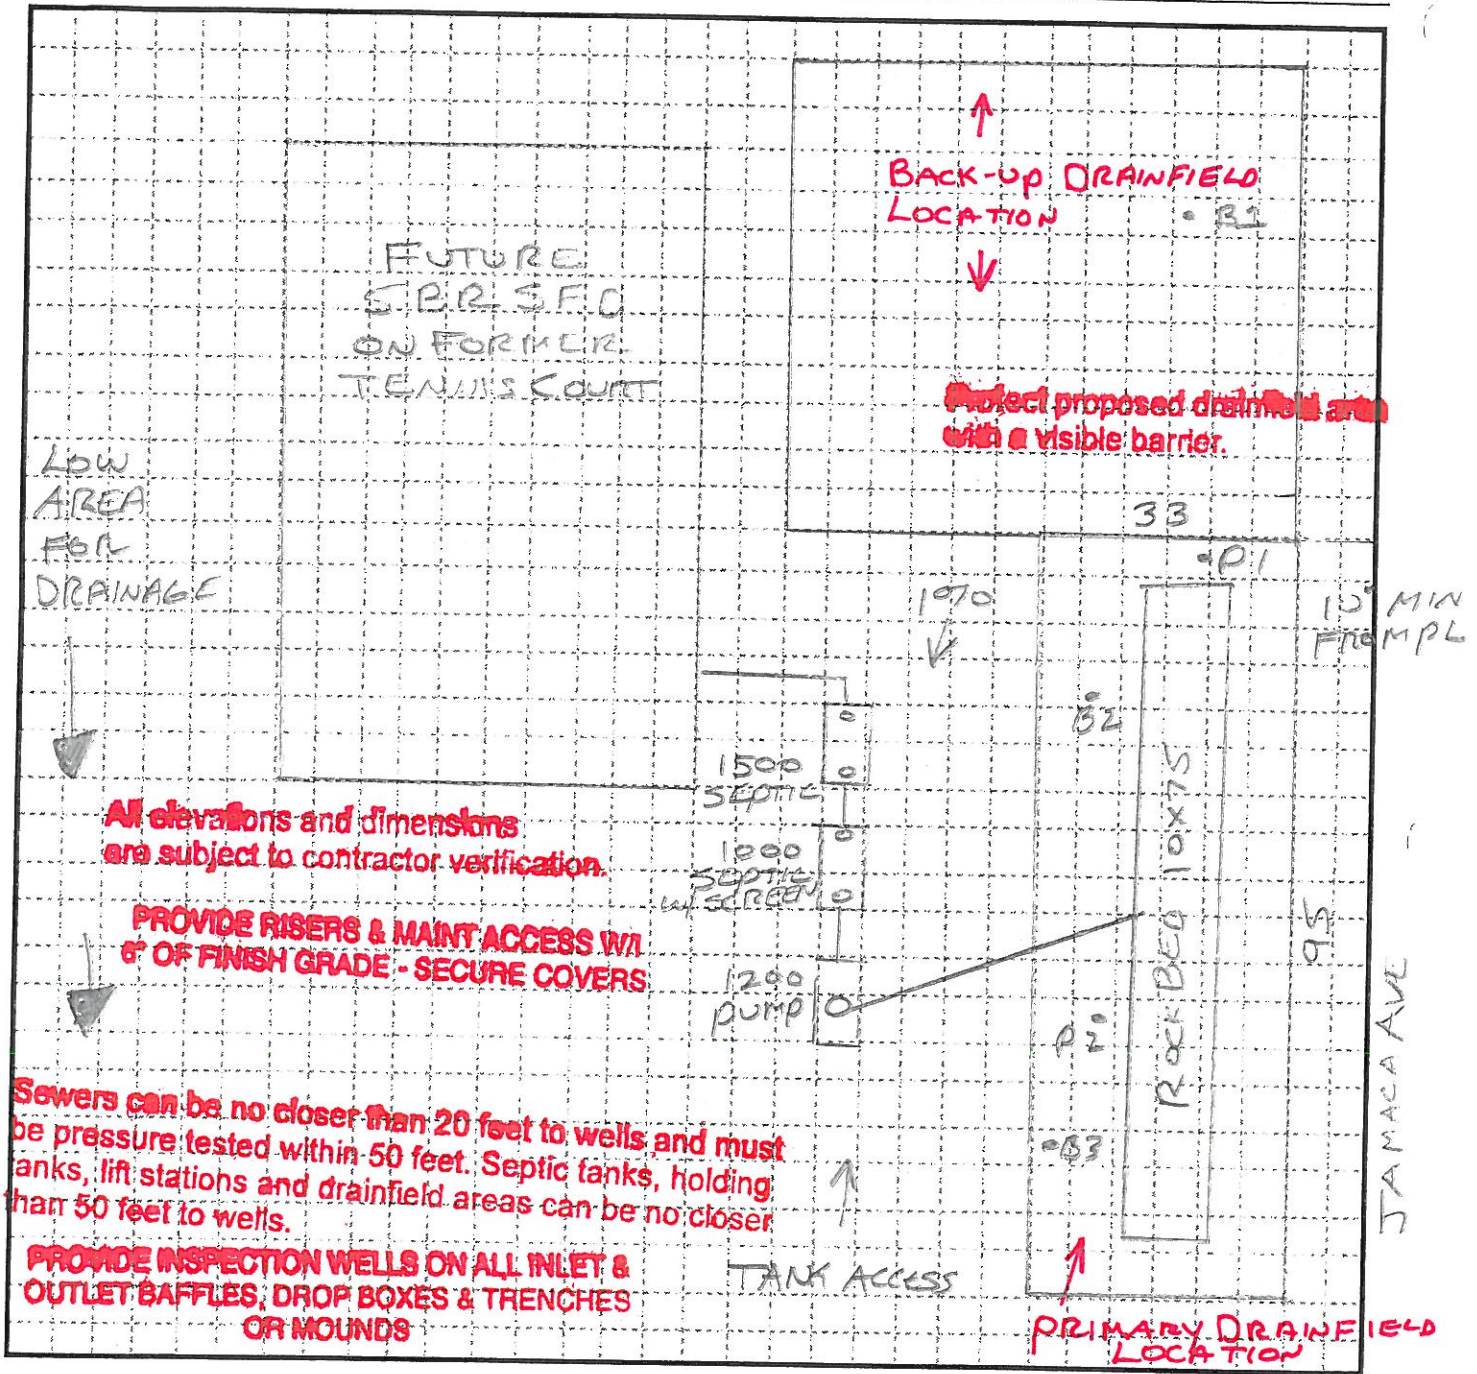 BACK-UP DRAINFIELD
LOCATION
• B1
FUTURE
5 BR SFD
ON FORMER
TENNIS COURT
Protect proposed drainfield area
with a visible barrier.
LOW
AREA
FOR
DRAINAGE
33
P1
1%
10' MIN
FROM PL
B2
1500
SEPTIC
All elevations and dimensions
are subject to contractor verification.
1000
SEPTIC
W/ SCREEN
ROCK BED 10x75
95
JAMACA AVE
PROVIDE RISERS & MAINT ACCESS W/I
6" OF FINISH GRADE - SECURE COVERS
1200
PUMP
P2
Sewers can be no closer than 20 feet to wells and must
be pressure tested within 50 feet. Septic tanks, holding
tanks, lift stations and drainfield areas can be no closer
than 50 feet to wells.
B3
PROVIDE INSPECTION WELLS ON ALL INLET &
OUTLET BAFFLES, DROP BOXES & TRENCHES
OR MOUNDS
TANK ACCESS
PRIMARY DRAINFIELD
LOCATION